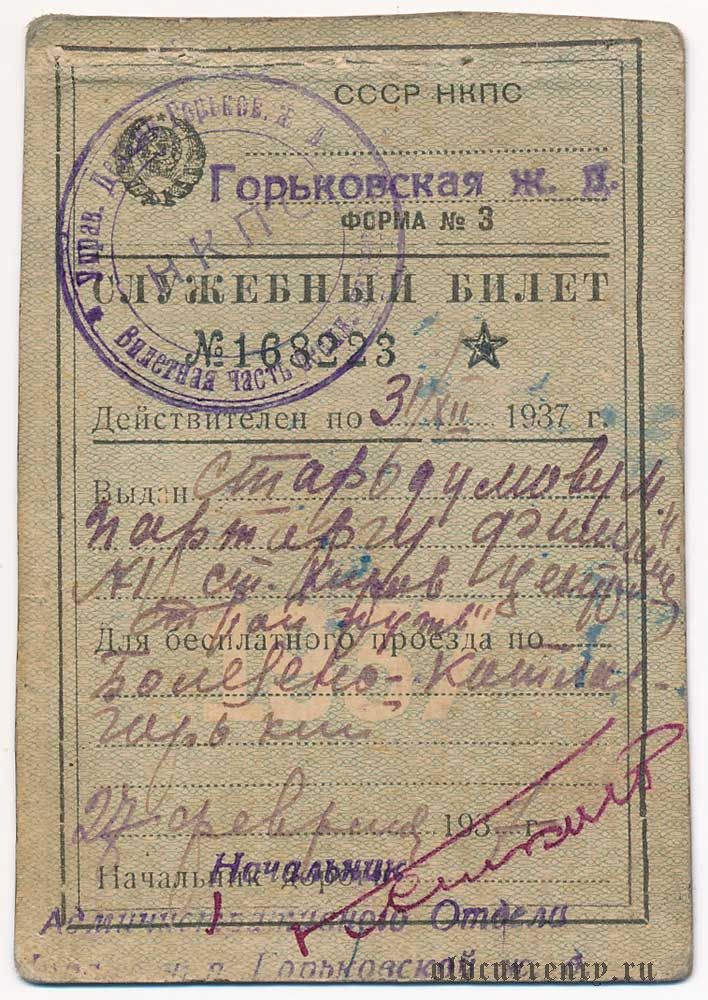 СССР НКПС
Горьковская ж. д.
ФОРМА № 3
Управ. Горьков. ж. д.
НКПС
Билетная часть
СЛУЖЕБНЫЙ БИЛЕТ
№168223
Действителен по 31/XII 1937 г.
Выдан Стародумову М. И.
Парторгу
№1 ст. Киров
"Строй путь"
Для бесплатного проезда по
1937
Горький
27 февраля 1937 г.
Начальник
Начальник дороги
Административного Отдела
Горьковской ж. д.
oldcurrency.ru